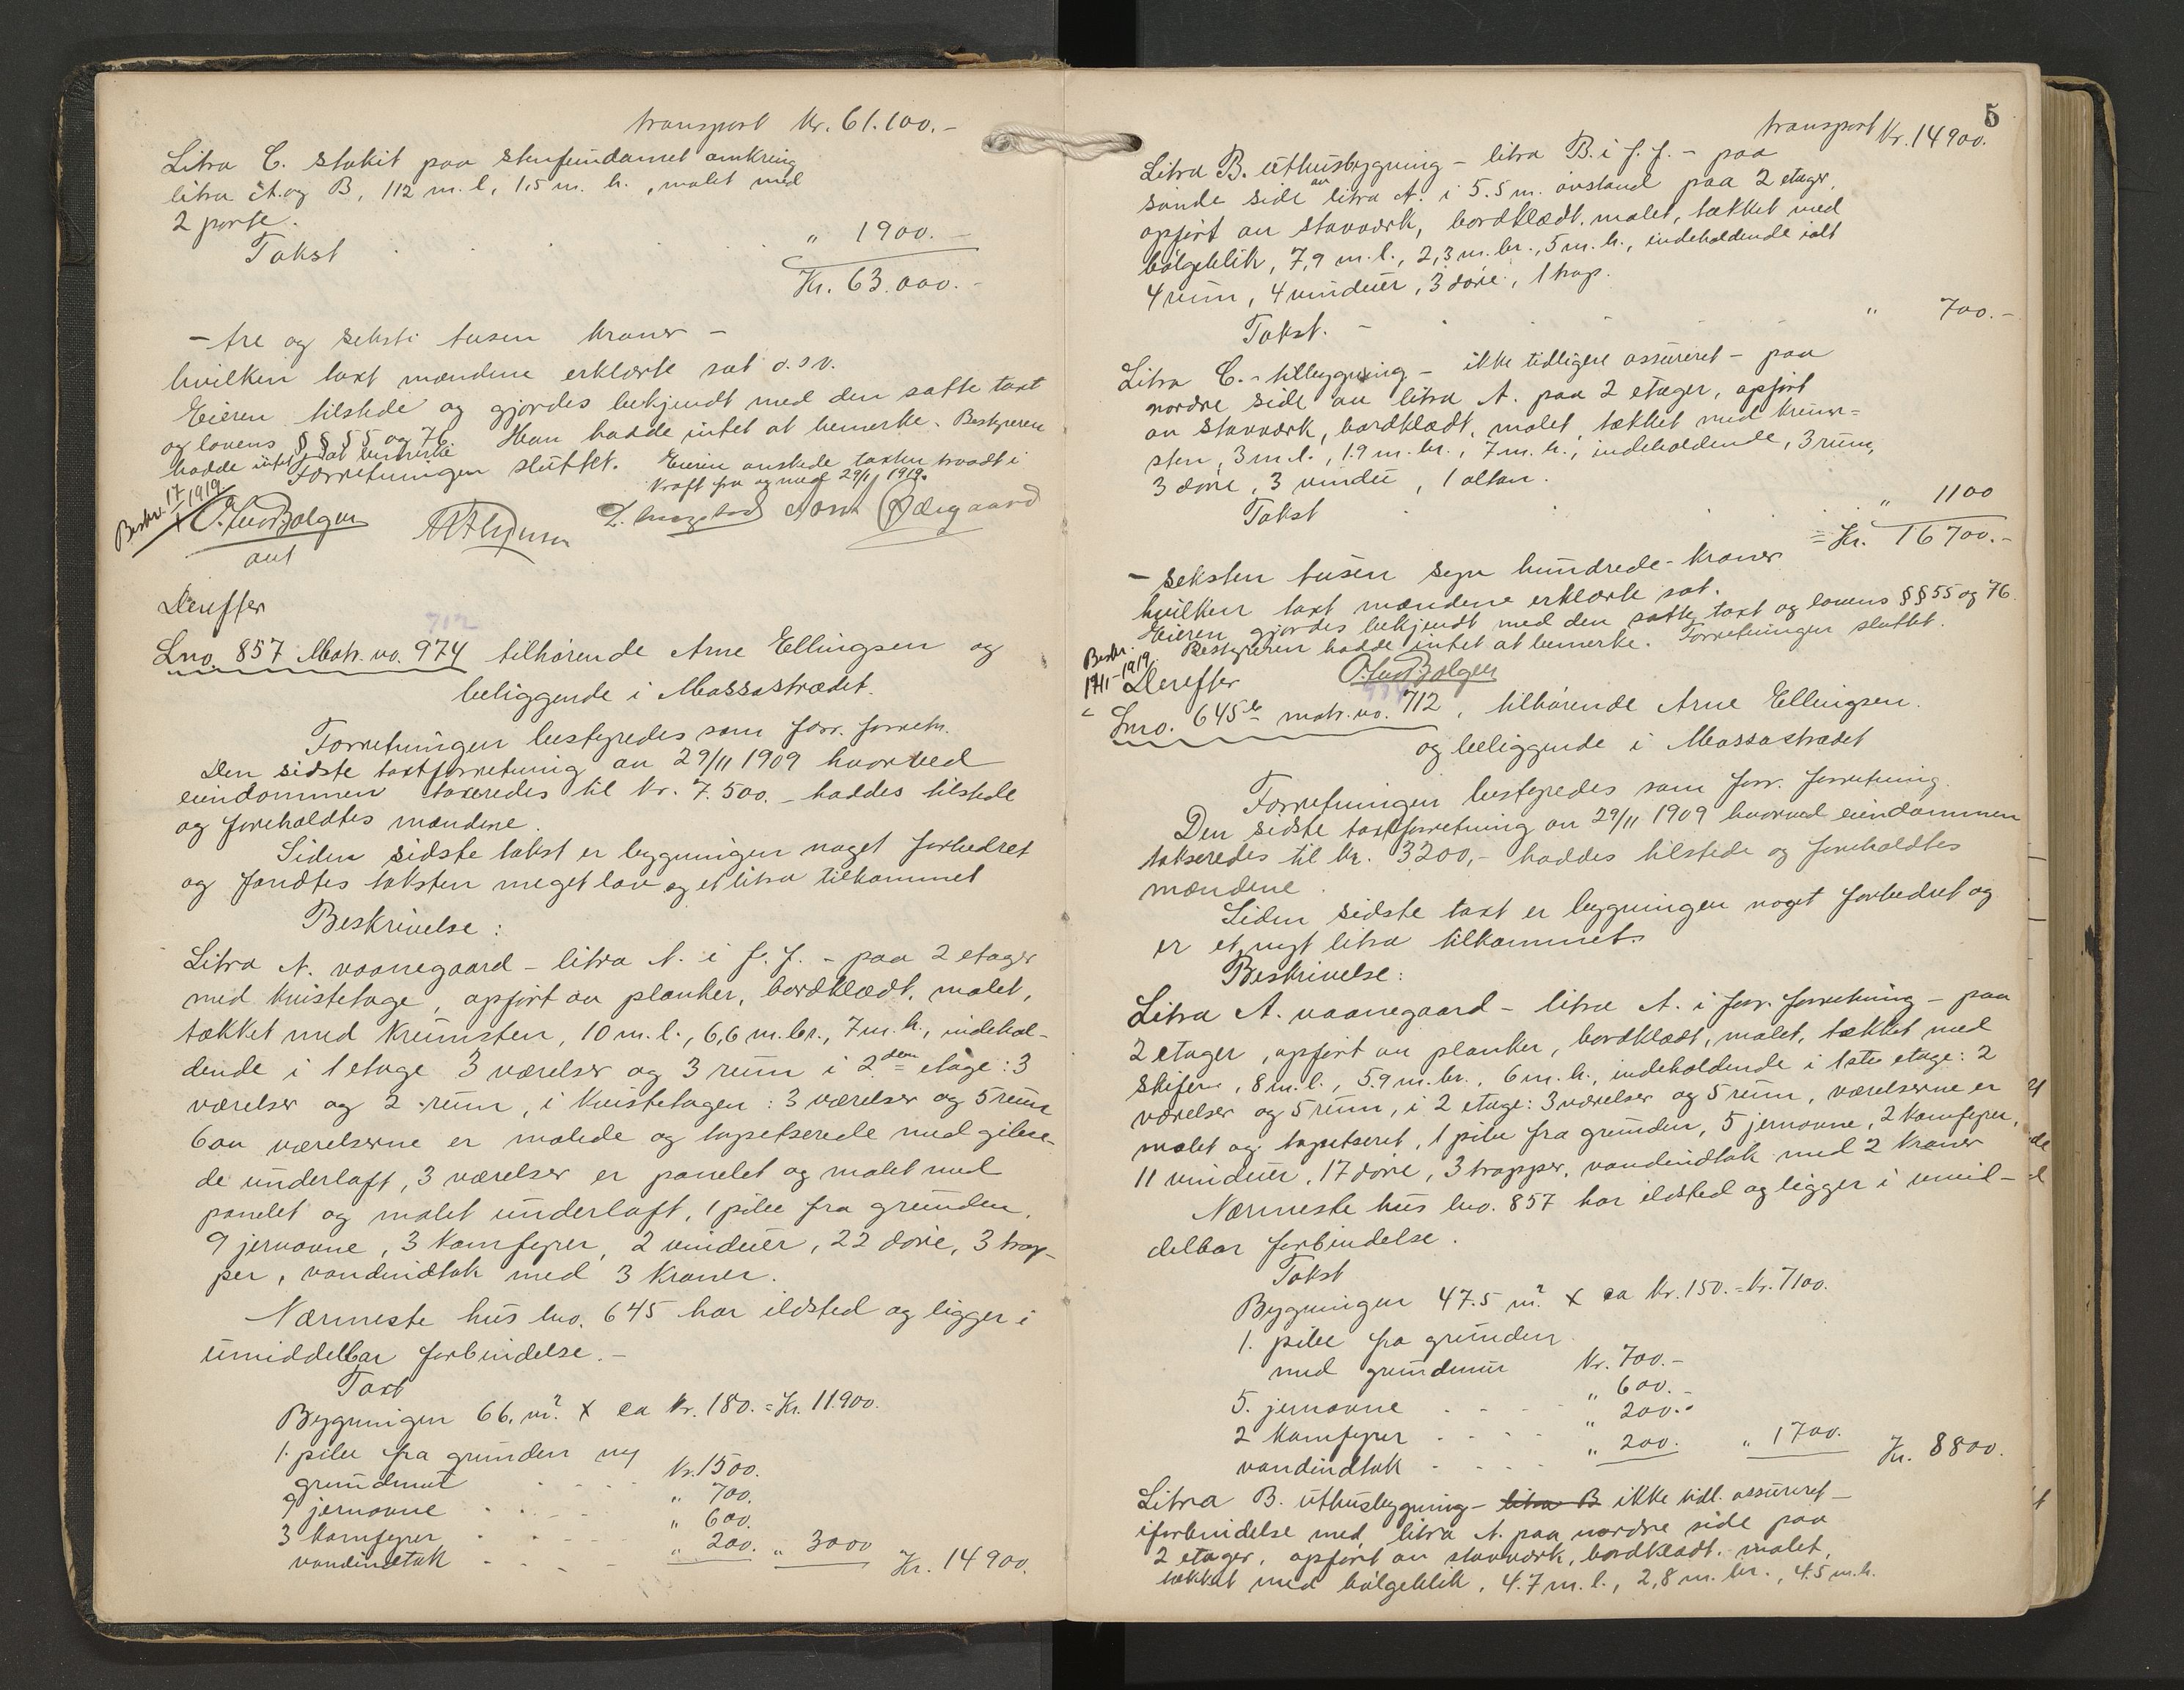 transport Kr. 61.100.-
Litra C. stakit paa stenfundamet omkring
litra A. og B, 112 m. l, 1,5 m. h., malet med
2 porte.
Takst " 1900. -
Kr. 63.000. -
- tre og seksti tusen kroner -
hvilken taxt mændene erklærte sat o.s.v.
Eieren tilstede og gjordes bekjendt med den satte taxt
og lovens §§ 55 og 76. Han hadde intet at bemerke. Bestyreren
hadde intet at bemerke
Forretningen sluttet. Eieren ønskede taxten traadt i
kraft fra og med 29/1 1919.
Beskr. 17/1 1919
aut
Derefter
712
Lno. 857 Matr. no. 974 tilhørende Arne Ellingsen og
beliggende i Massastrædet.
Forretningen bestyredes som forr. forretn.
Den sidste taxtforretning av 29/11 1909 hvorved
eiendommen taxeredes til kr. 7.500.- haddes tilstede
og foreholdtes mændene.
Siden sidste takst er bygningen noget forbedret
og fandtes taksten meget lav og et litra tilkommet
Beskrivelse:
Litra A. vaanegaard - litra A. i f. f. - paa 2 etager
med kvistetage, opført av planker, bordklædt, malet,
tækket med krumsten, 10 m. l., 6,6 m. br., 7 m. h., indehol-
dende i 1 etage 3 værelser og 3 rum i 2den etage: 3
værelser og 2 rum, i kvistetagen: 3 værelser og 5 rum
6 av værelserne er malede og tapetserede med gibse-
de underloft, 3 værelser er panelet og malet med
panelet og malet underloft, 1 pibe fra grunden,
9 jernovne, 3 komfyrer, 2 vinduer, 22 døre, 3 trap-
per, vandindtak med 3 kraner.
Nærmeste hus lno. 645 har ildsted og ligger i
umiddelbar forbindelse.-
Taxt
Bygningen 66. m² x ca kr. 180. = Kr. 11.900.
1. pibe fra grunden og
grundmut Kr. 1500.
9 jernovne " 700.
3 komfyrer " 600.
vandindtak " 200. " 3000 Kr. 14900.
5
transport Kr. 14900.
Litra B. uthusbygning - litra B. i f. f. - paa
søndre side av litra A. i 5.5 m. avstand paa 2 etager,
opført av stavverk, bordklædt, malet, tækket med
bølgeblik, 7,9 m. l., 2,3 m. br., 5 m. h., indeholdende ialt
4 rum, 4 vinduer, 3 døre, 1 trap.
Takst. - " 700.-
Litra C. - tilbygning - ikke tidligere assureret - paa
nordre side av litra A. paa 2 etager, opført
av stavverk, bordklædt, malet, tækket med krum-
sten, 3 m. l., 1.9 m. br., 7 m. h., indeholdende, 3 rum,
3 døre, 3 vindu, 1 altan.
Takst " 1100
= Kr. 16700.-
- seksten tusen syv hundrede - kroner
hvilken taxt mændene erklærte sat.
Eieren gjordes bekjendt med den satte taxt og lovens §§ 55 og 76.
Bestyreren hadde intet at bemerke. Forretningen sluttet.
Beskr.
17/1 - 1919.
Derefter
Lno. 645b matr. no. 712, tilhørende Arne Ellingsen.
og beliggende i Massastrædet
Forretningen bestyredes som forr. forretning.
Den sidste taxtforretning av 29/11 1909 hvorved eiendommen
takseredes til kr. 3200,- haddes tilstede og foreholdtes
mændene.
Siden sidste taxt er bygningen noget forbedret og
er et nyt litra tilkommet.
Beskrivelse:
Litra A. vaanegaard - litra A. i forr. forretning - paa
2 etager, opført av planker, bordklædt, malet, tækket med
skifer, 8 m. l., 5.9 m. br., 6 m. h., indeholdende i 1ste etage: 2
værelser og 5 rum, i 2 etage: 3 værelser og 5 rum, værelserne er
malet og tapetseret, 1 pibe fra grunden, 5 jernovne, 2 komfyrer,
11 vinduer, 17 døre, 3 trapper, vandindtak med 2 kraner
Nærmeste hus lno. 857 har ildsted og ligger i umid-
delbar forbindelse.
Takst
Bygningen 47.5 m² x ca kr. 150. = kr. 7100.
1. pibe fra grunden
med grundmur Kr. 700.-
5. jernovne " 600.-
2 komfyrer " 200.-
vandindtak " 200. " 1700. Kr. 8800.
Litra B. uthusbygning - litra B ikke tidl. assureret -
iforbindelse med litra A. paa nordre side paa
2 etager, opført av stavverk, bordklædt, malet,
tækket med bølgeblik, 4.7 m. l., 2,8 m. br., 4.5 m. h.